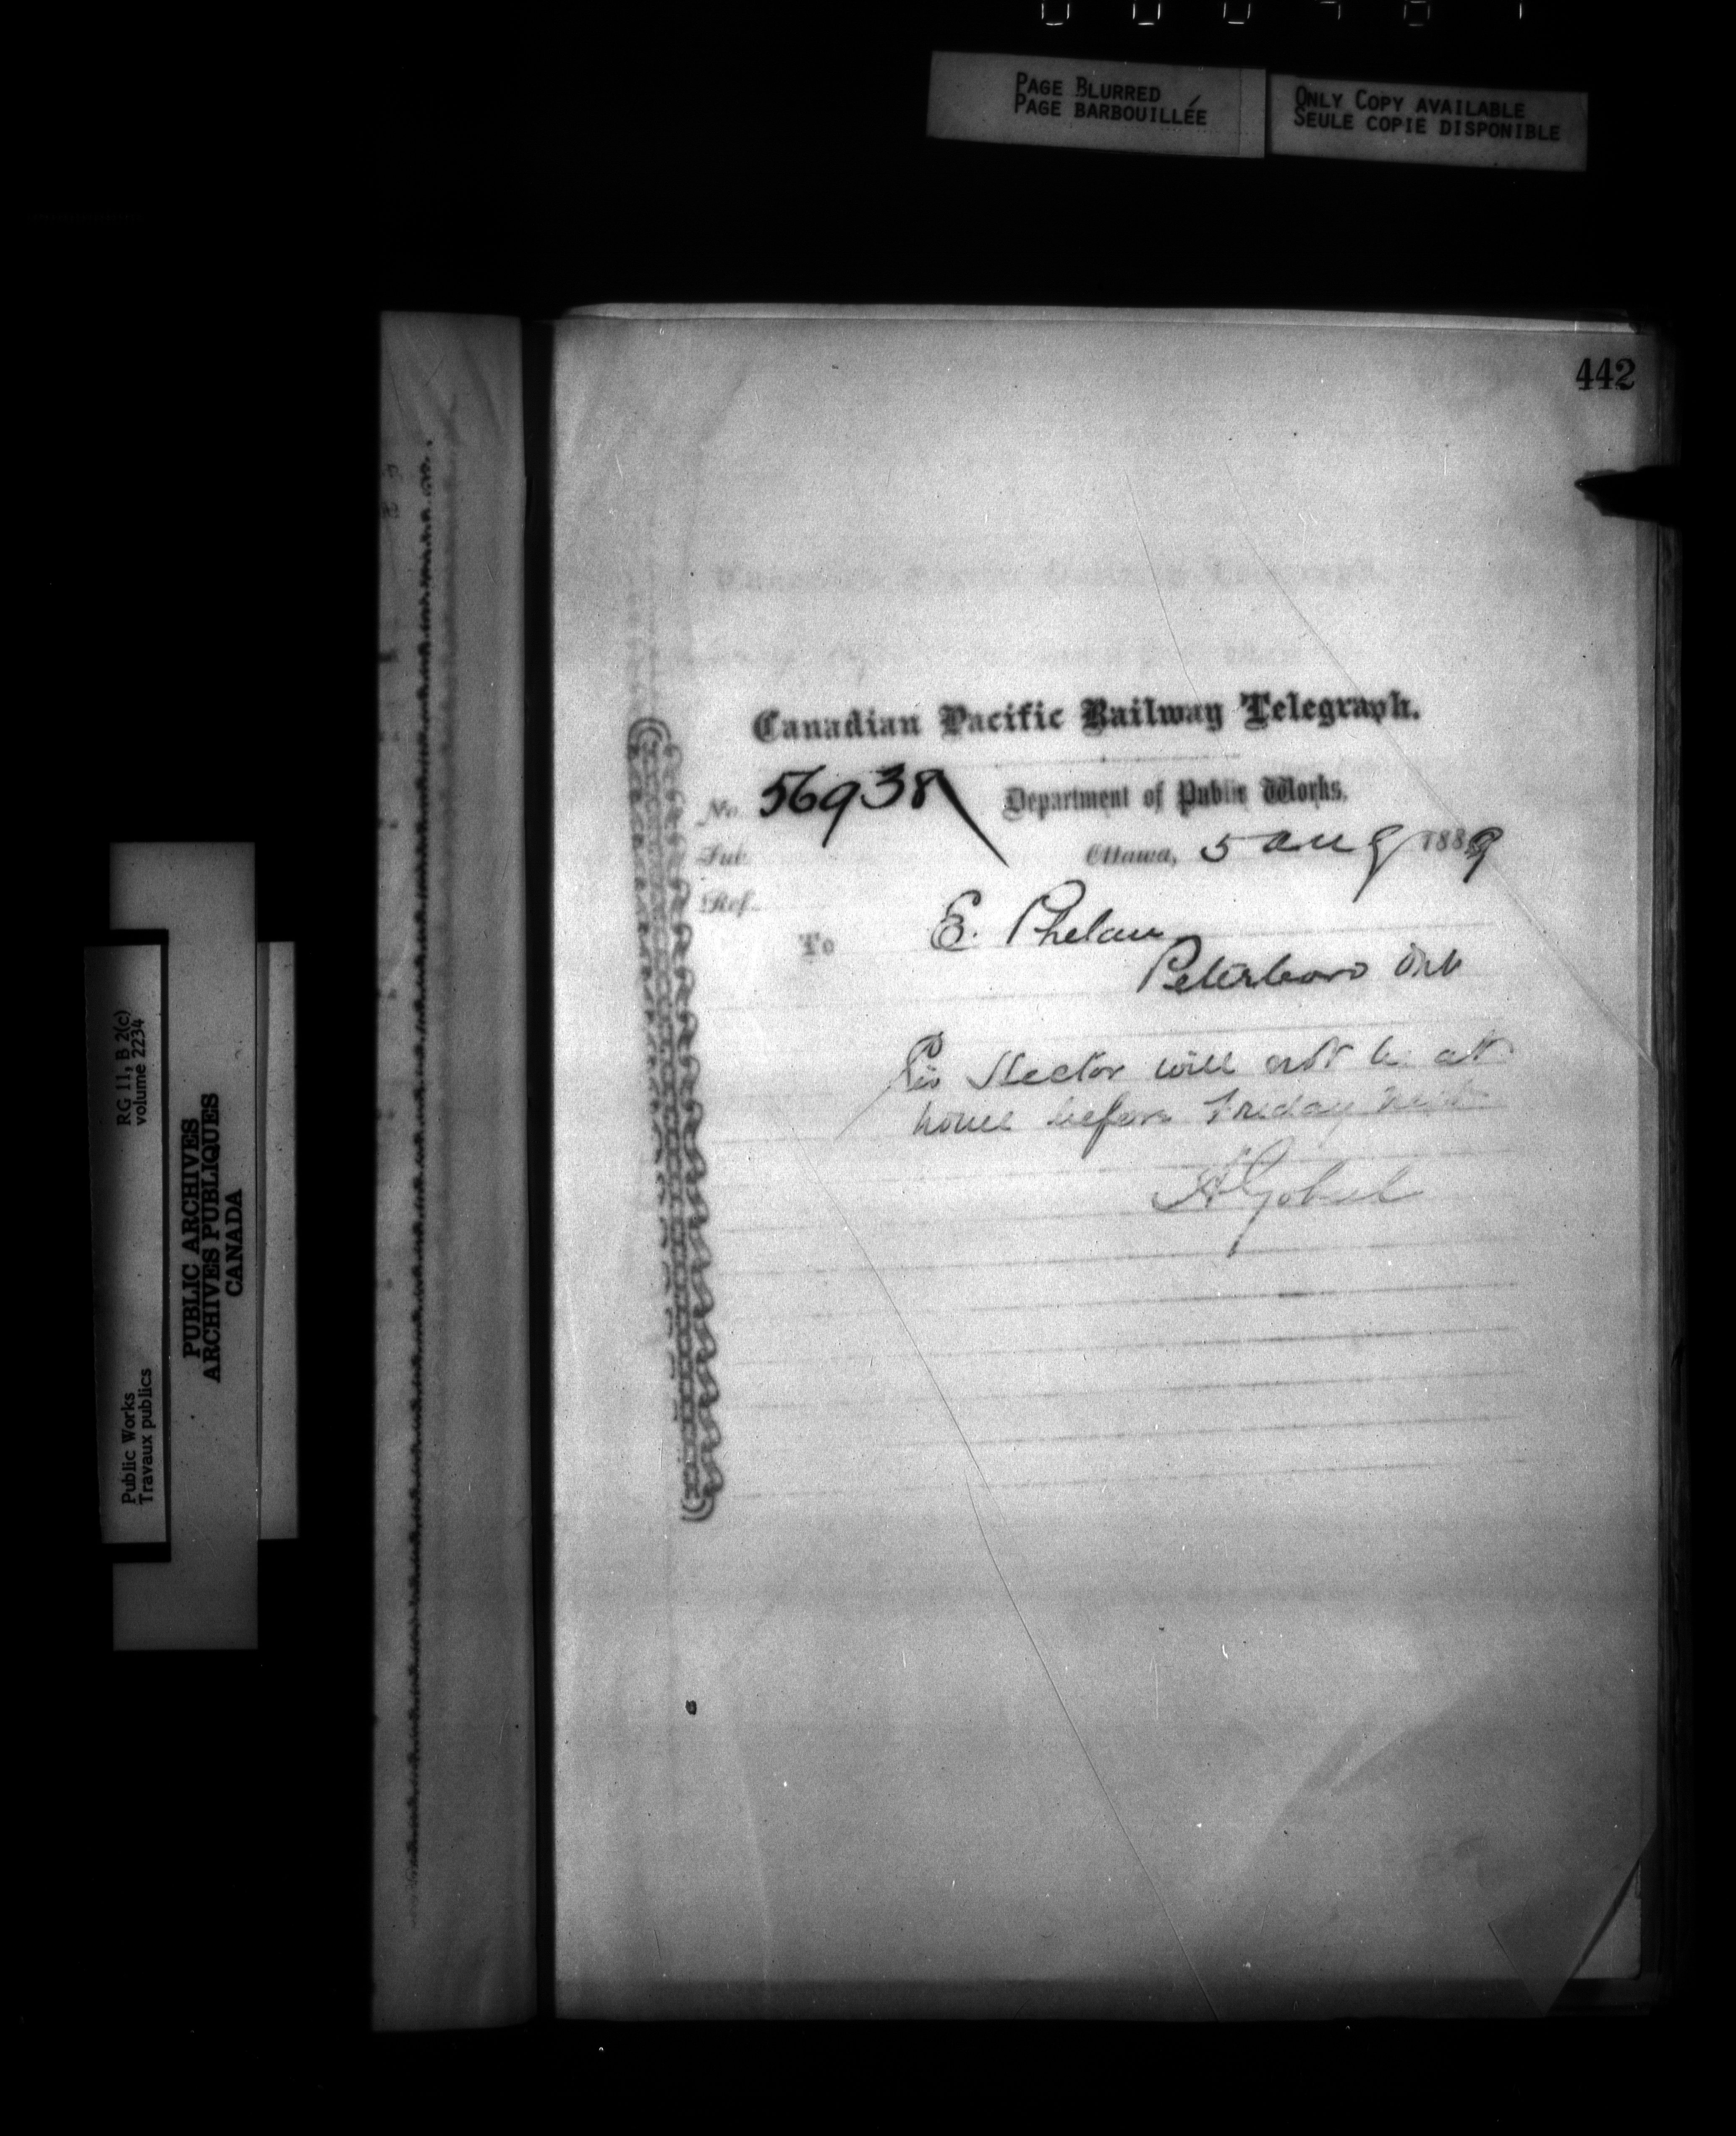 PAGE BLURRED
PAGE BARBOUILLÉE
ONLY COPY AVAILABLE
SEULE COPIE DISPONIBLE
442
Canadian Pacific Railway Telegraph.
No. 56938
Department of Public Works.
Sub.
Ottawa, 5 Aug 1889
Ref.
To E. Phelan
Peterboro Ont
Sir Hector will not be at
home before Friday next
A Gobeil
RG 11, B 2(c)
volume 2234
Public Works
Travaux publics
PUBLIC ARCHIVES
ARCHIVES PUBLIQUES
CANADA